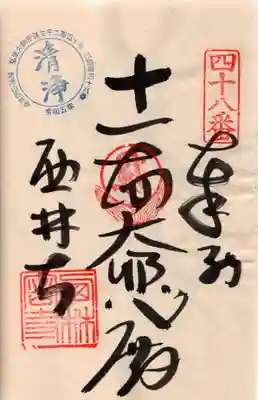 四十八番
奉納
十一面大悲殿
清浄
西林寺